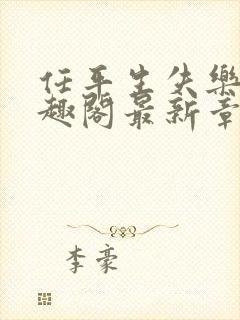 任平生失樂
趣閣最新章
李豪